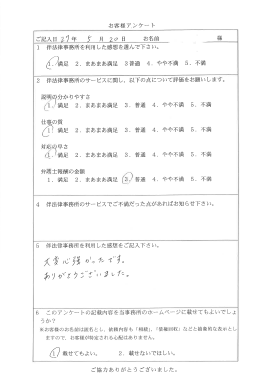 お客様アンケート
ご記入日 27年 5月 20日 お名前 様
1 伴法律事務所を利用した感想を選んで下さい。
1．満足 2．まあまあ満足 3 普通 4．やや不満 5．不満
2 伴法律事務所のサービスに関し、以下の点について評価をお願いします。
説明の分かりやすさ
1．満足 2．まあまあ満足 3．普通 4．やや不満 5．不満
仕事の質
1．満足 2．まあまあ満足 3．普通 4．やや不満 5．不満
対応の早さ
1．満足 2．まあまあ満足 3．普通 4．やや不満 5．不満
弁護士報酬の金額
1．満足 2．まあまあ満足 3．普通 4．やや不満 5．不満
4 伴法律事務所のサービスでご不満だった点があればお知らせ下さい。
5 伴法律事務所を利用した感想をご記入下さい。
大変心強かったです。
ありがとうございました。
6 このアンケートの記載内容を当事務所のホームページに載せてもよいでしょうか？
※お客様のお名前は匿名とし、依頼内容も「相続」、「債権回収」などと抽象的な表示としますので、お客様が特定される心配はありません。
1．載せてもよい。 2．載せないでほしい。
ご協力ありがとうございました。